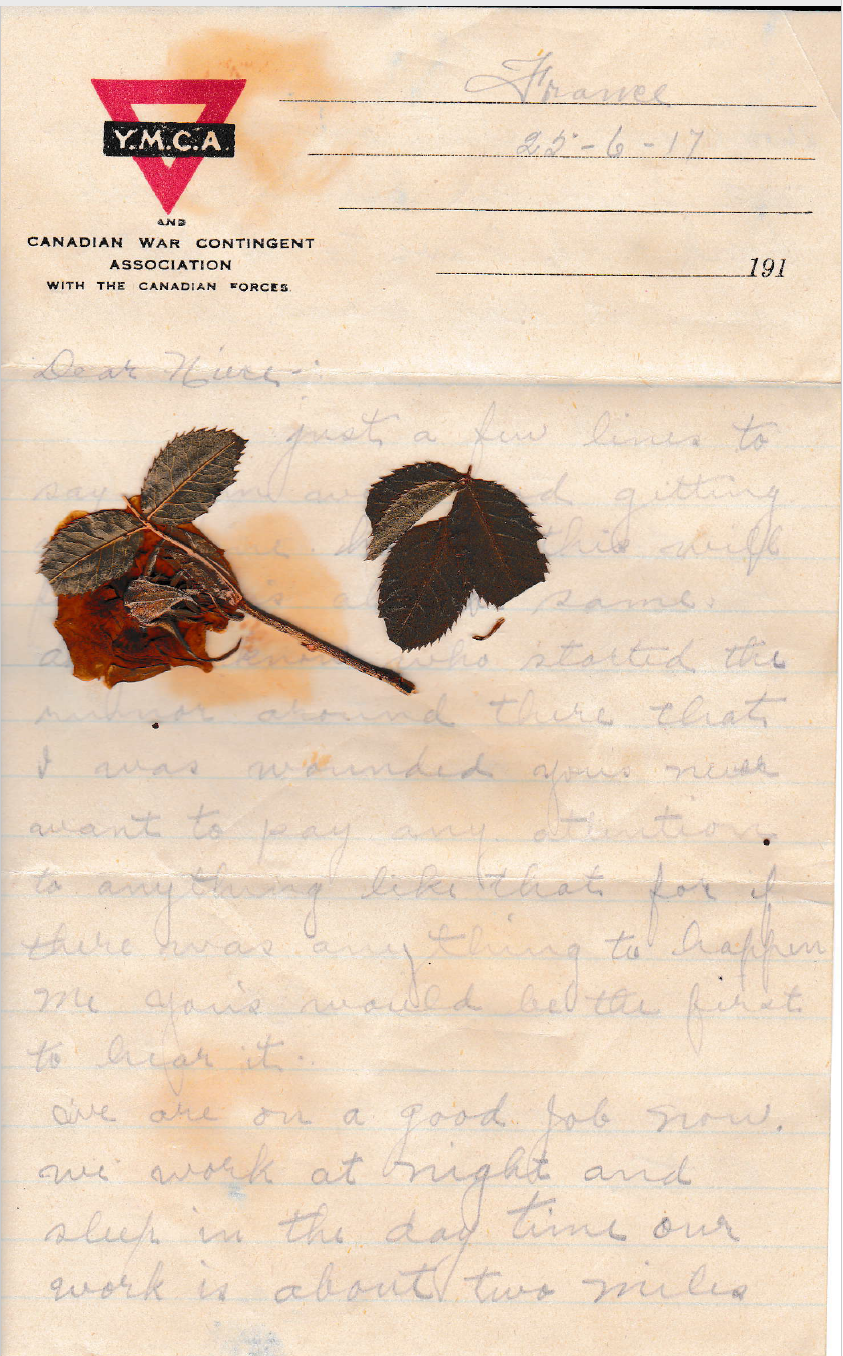 France
Y.M.C.A.
25-6-17
AND
CANADIAN WAR CONTINGENT
ASSOCIATION
WITH THE CANADIAN FORCES.
191
Dear
just a few lines to
say gitting
this will
same.
who started the
around there that
I was wounded you's never
want to pay any attention
to anything like that for if
there was anything to happen
me you's would be the first
to hear it.
we are on a good job now.
we work at night and
sleep in the day time our
work is about two miles